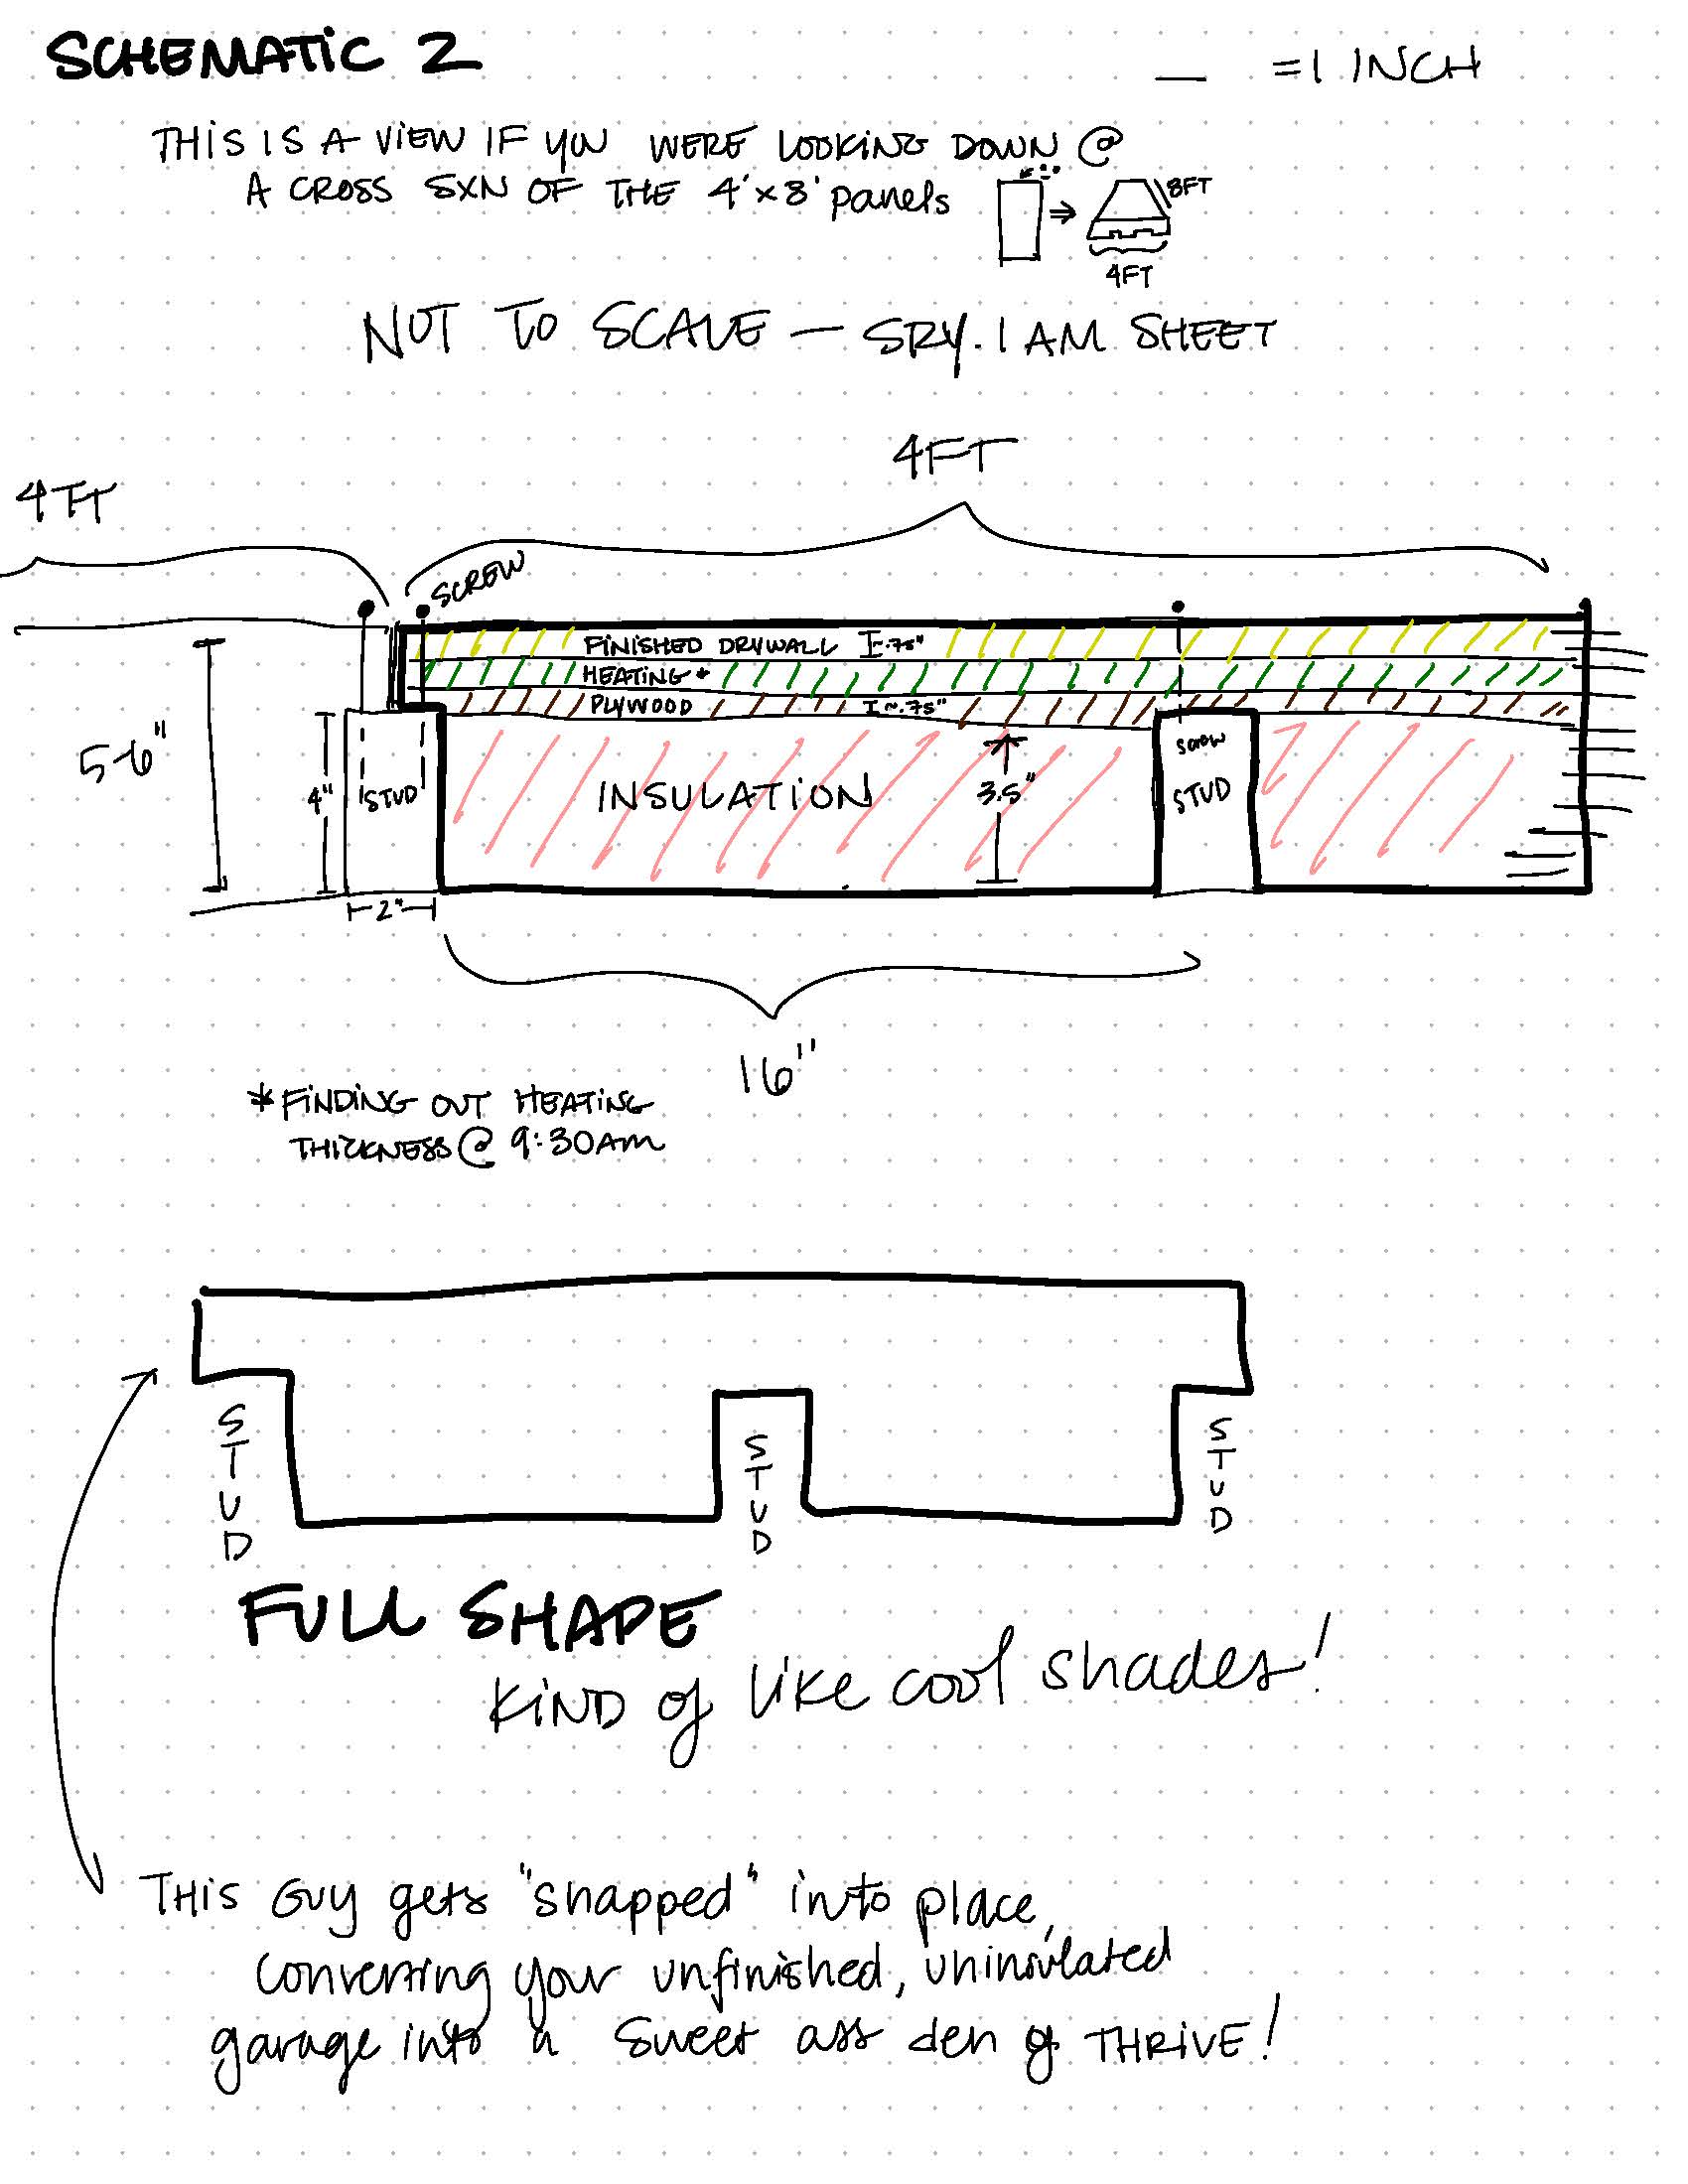 SCHEMATIC 2
— = 1 INCH
THIS IS A VIEW IF YOU WERE LOOKING DOWN @
A CROSS SXN OF THE 4'x8' panels
8FT
4FT
NOT TO SCALE — SRY. I AM SHEET
4FT
4FT
SCREW
FINISHED DRYWALL ~.75"
HEATING *
PLYWOOD ~.75"
5-6"
4"
STUD
INSULATION
3.5"
SCREW
STUD
2"
16"
* FINDING OUT HEATING
THICKNESS @ 9:30AM
STUD
STUD
STUD
FULL SHAPE
KIND of like cool shades!
THIS GUY gets "snapped" into place,
converting your unfinished, uninsulated
garage into a sweet ass den of THRIVE!